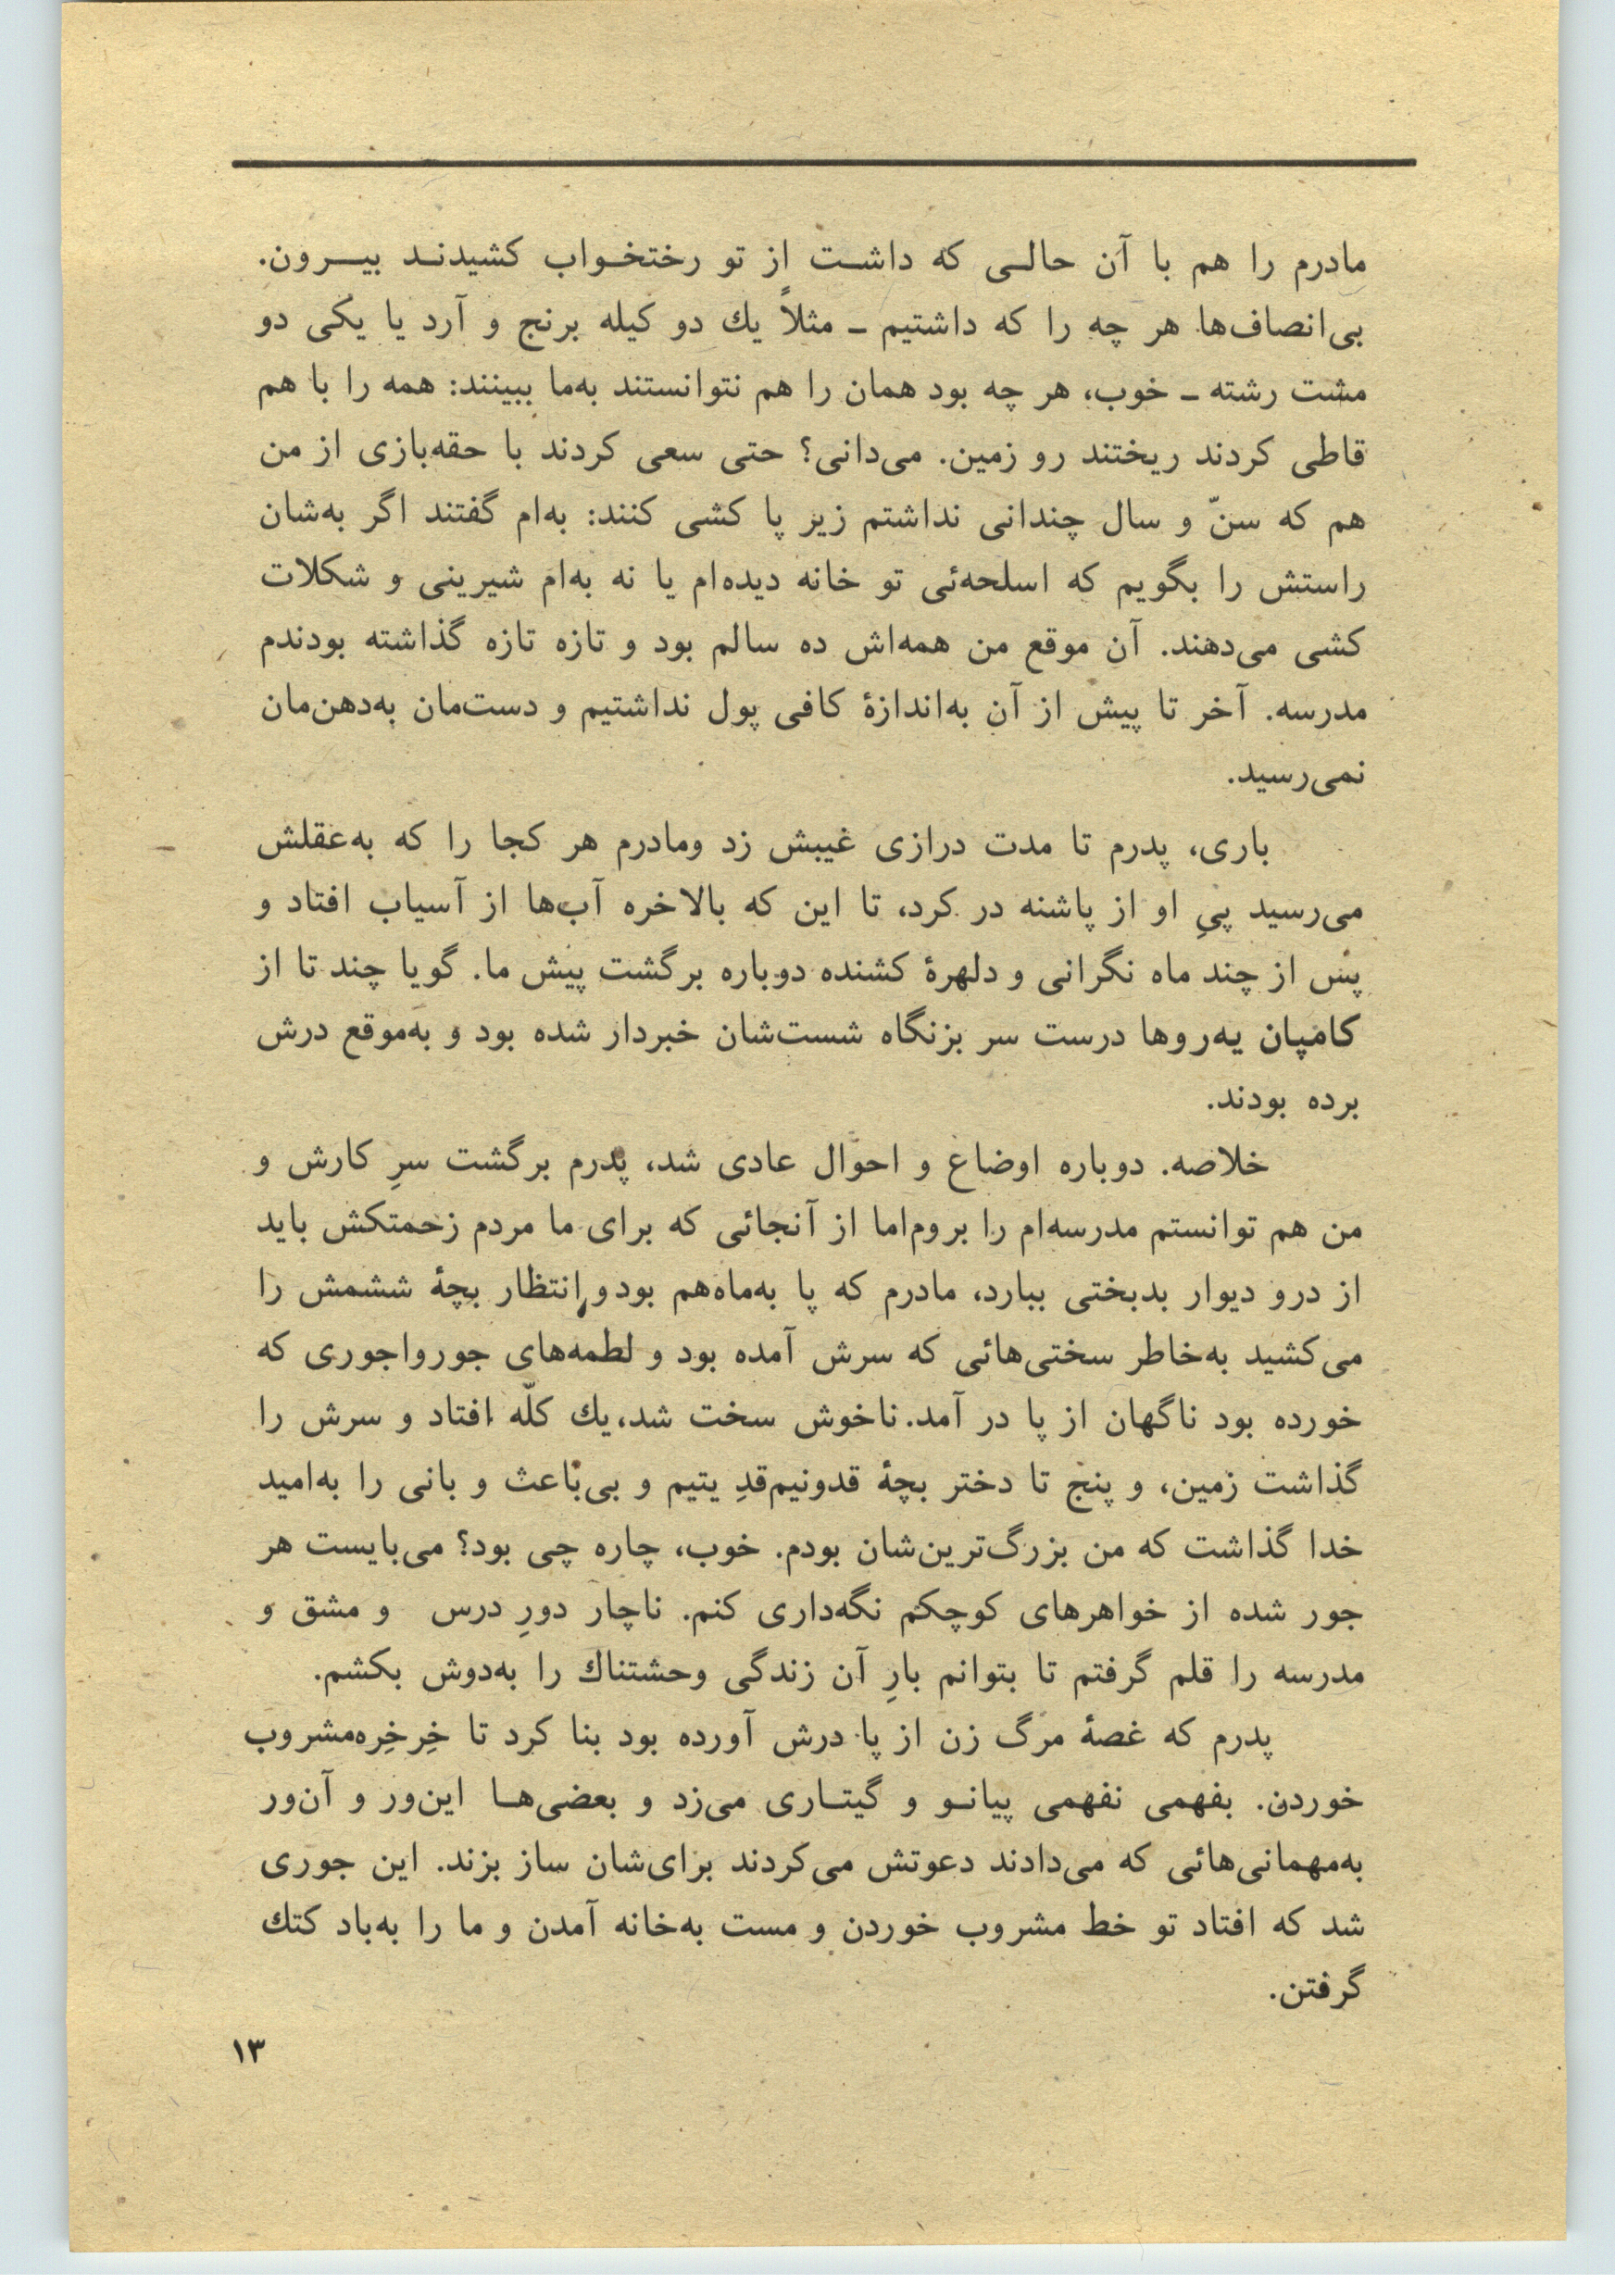 مادرم را هم با آن حالـی که داشـت از تو رختخـواب کشیدنـد بیـرون.
بی‌انصاف‌ها هر چه را که داشتیم ـ مثلاً یك دو کیله برنج و آرد یا یکی دو
مشت رشته ـ خوب، هر چه بود همان را هم نتوانستند به‌ما ببینند: همه را با هم
قاطی کردند ریختند رو زمین. می‌دانی؟ حتی سعی کردند با حقه‌بازی از من
هم که سنّ و سال چندانی نداشتم زیر پا کشی کنند: به‌ام گفتند اگر به‌شان
راستش را بگویم که اسلحه‌ئی تو خانه دیده‌ام یا نه به‌ام شیرینی و شکلات
کشی می‌دهند. آن موقع من همه‌اش ده سالم بود و تازه تازه گذاشته بودندم
مدرسه. آخر تا پیش از آن به‌اندازهٔ کافی پول نداشتیم و دست‌مان به‌دهن‌مان
نمی‌رسید.
باری، پدرم تا مدت درازی غیبش زد ومادرم هر کجا را که به‌عقلش
می‌رسید پیِ او از پاشنه در کرد، تا این که بالاخره آب‌ها از آسیاب افتاد و
پس از چند ماه نگرانی و دلهرهٔ کشنده دوباره برگشت پیش ما. گویا چند تا از
کامپان یه‌روها درست سر بزنگاه شست‌شان خبردار شده بود و به‌موقع درش
برده بودند.
خلاصه. دوباره اوضاع و احوال عادی شد، پدرم برگشت سرِ کارش و
من هم توانستم مدرسه‌ام را بروم‌اما از آنجائی که برای ما مردم زحمتکش باید
از درو دیوار بدبختی ببارد، مادرم که پا به‌ماه‌هم بود و انتظار بچهٔ ششمش را
می‌کشید به‌خاطر سختی‌هائی که سرش آمده بود و لطمه‌های جورواجوری که
خورده بود ناگهان از پا در آمد. ناخوش سخت شد،یك کلّه افتاد و سرش را
گذاشت زمین، و پنج تا دختر بچهٔ قدونیم‌قدِ یتیم و بی‌باعث و بانی را به‌امید
خدا گذاشت که من بزرگ‌ترین‌شان بودم. خوب، چاره چی بود؟ می‌بایست هر
جور شده از خواهرهای کوچکم نگه‌داری کنم. ناچار دورِ درس و مشق و
مدرسه را قلم گرفتم تا بتوانم بارِ آن زندگی وحشتناك را به‌دوش بکشم.
پدرم که غصهٔ مرگ زن از پا درش آورده بود بنا کرد تا خِرخِره‌مشروب
خوردن. بفهمی نفهمی پیانـو و گیتـاری می‌زد و بعضی‌هـا این‌ور و آن‌ور
به‌مهمانی‌هائی که می‌دادند دعوتش می‌کردند برای‌شان ساز بزند. این جوری
شد که افتاد تو خط مشروب خوردن و مست به‌خانه آمدن و ما را به‌باد کتك
گرفتن.
۱۳